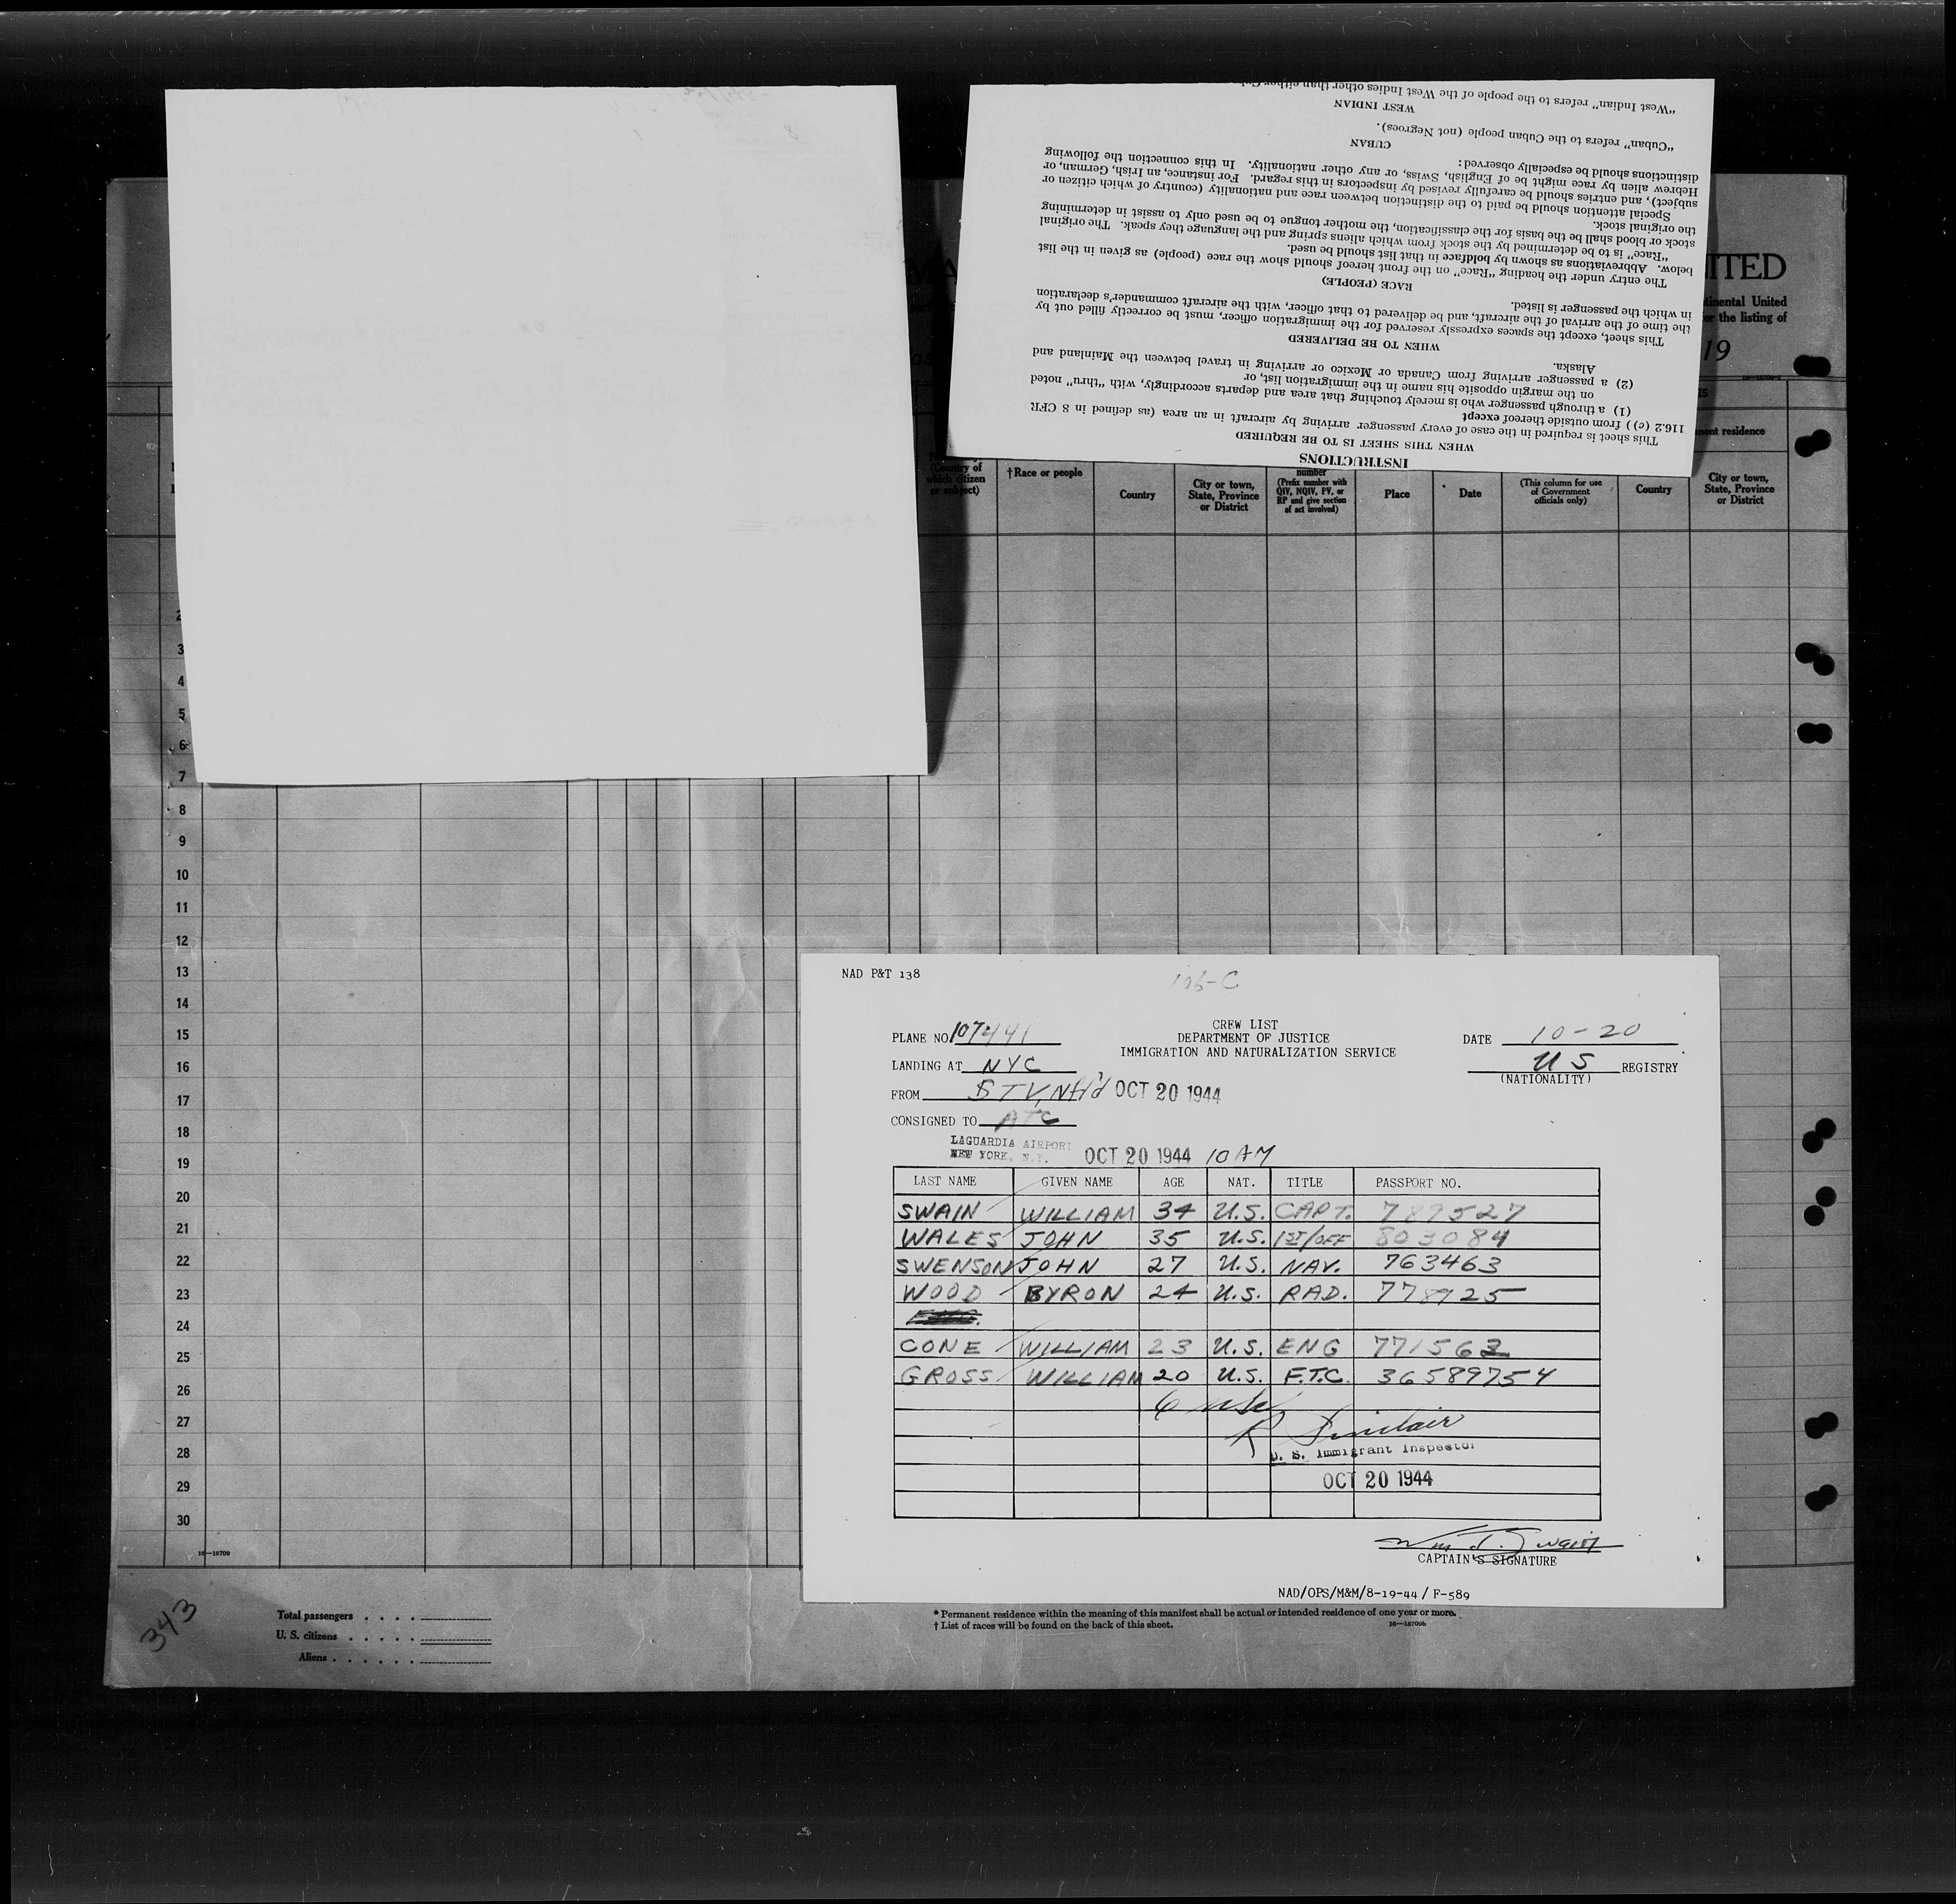 "West Indian" refers to the people of the West Indies other than either
WEST INDIAN
"Cuban" refers to the Cuban people (not Negroes).
CUBAN
distinctions should be especially observed:
Hebrew alien by race might be of English, Swiss, or any other nationality. In this connection the following
subject), and entries should be carefully revised by inspectors in this regard. For instance, an Irish, German, or
Special attention should be paid to the distinction between race and nationality (country of which citizen or
the original stock.
stock or blood shall be the basis for the classification, the mother tongue to be used only to assist in determining
"Race" is to be determined by the stock from which aliens spring and the language they speak. The original
below. Abbreviations as shown by boldface in that list should be used.
The entry under the heading "Race" on the front hereof should show the race (people) as given in the list
RACE (PEOPLE)
in which the passenger is listed.
the time of the arrival of the aircraft, and be delivered to that officer, with the aircraft commander's declaration
This sheet, except the spaces expressly reserved for the immigration officer, must be correctly filled out by
WHEN TO BE DELIVERED
Alaska.
(2) a passenger arriving from Canada or Mexico or arriving in travel between the Mainland and
on the margin opposite his name in the immigration list, or
(1) a through passenger who is merely touching that area and departs accordingly, with "thru" noted
116.2 (c)) from outside thereof except
This sheet is required in the case of every passenger arriving by aircraft in an area (as defined in 8 CFR
WHEN THIS SHEET IS TO BE REQUIRED
INSTRUCTIONS
ITED
tinental United
or the listing of
19
nent residence
(Country of which citizen or subject)
†Race or people
Country
City or town, State, Province or District
number (Prefix number with QIV, NQIV, PV, or RP and give section of act involved)
Place
Date
(This column for use of Government officials only)
Country
City or town, State, Province or District
2
3
4
5
6
7
8
9
10
11
12
13
14
15
16
17
18
19
20
21
22
23
24
25
26
27
28
29
30
16—18709
NAD P&T 138
106-C
CREW LIST
PLANE NO 107441 DEPARTMENT OF JUSTICE DATE 10-20
IMMIGRATION AND NATURALIZATION SERVICE
LANDING AT NYC US REGISTRY
(NATIONALITY)
FROM STV, Nf'd OCT 20 1944
CONSIGNED TO ATC
LAGUARDIA AIRPORT
NEW YORK, N.Y. OCT 20 1944 10 AM
LAST NAME GIVEN NAME AGE NAT. TITLE PASSPORT NO.
SWAIN WILLIAM 34 U.S. CAPT. 789527
WALES JOHN 35 U.S. 1ST/OFF 803084
SWENSON JOHN 27 U.S. NAV. 763463
WOOD BYRON 24 U.S. RAD. 778925
CONE WILLIAM 23 U.S. ENG 771562
GROSS WILLIAM 20 U.S. F.T.C. 36589754
6
R Sinclair
U. S. Immigrant Inspector
OCT 20 1944
Wm T. Swain
CAPTAIN'S SIGNATURE
NAD/OPS/M&M/8-19-44 / F-589
343
Total passengers . . . .
U. S. citizens . . . . .
Aliens . . . . . .
* Permanent residence within the meaning of this manifest shall be actual or intended residence of one year or more.
† List of races will be found on the back of this sheet.
16—18709b